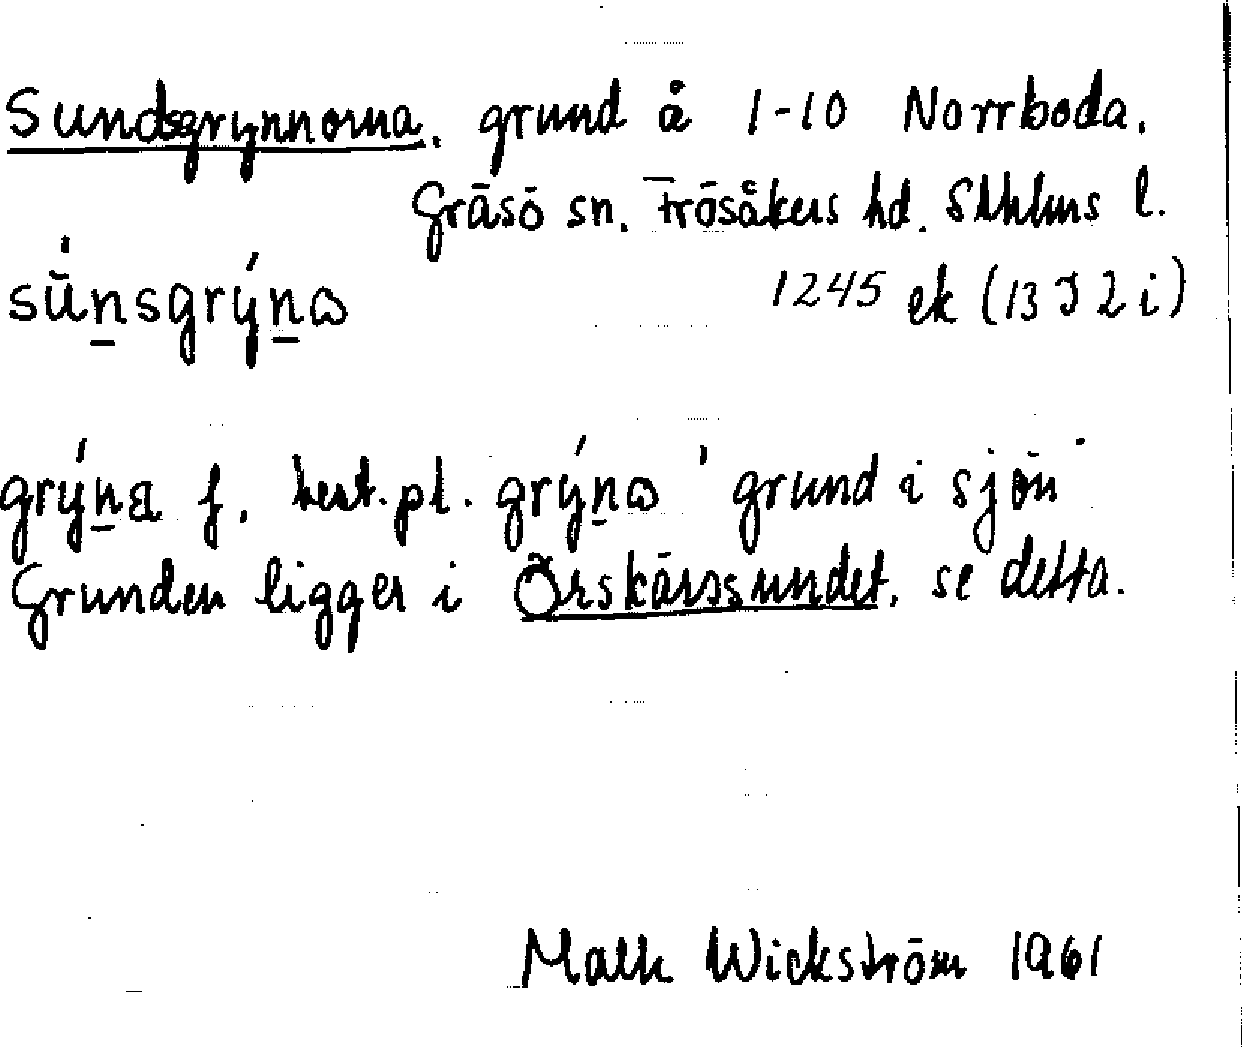 Sundsgrynnorna, grund å 1-10 Norrboda,
Gräsö sn, Frösåkers hd. Sthlms l.
sú̄n̲sgrýn̲ɷ 1245 ek (13 I 2 i)
grýn̲a f, best. pl. grýn̲ɷ 'grund i sjön'
Grunden ligger i Örskärssundet, se detta.
Wickström 1961